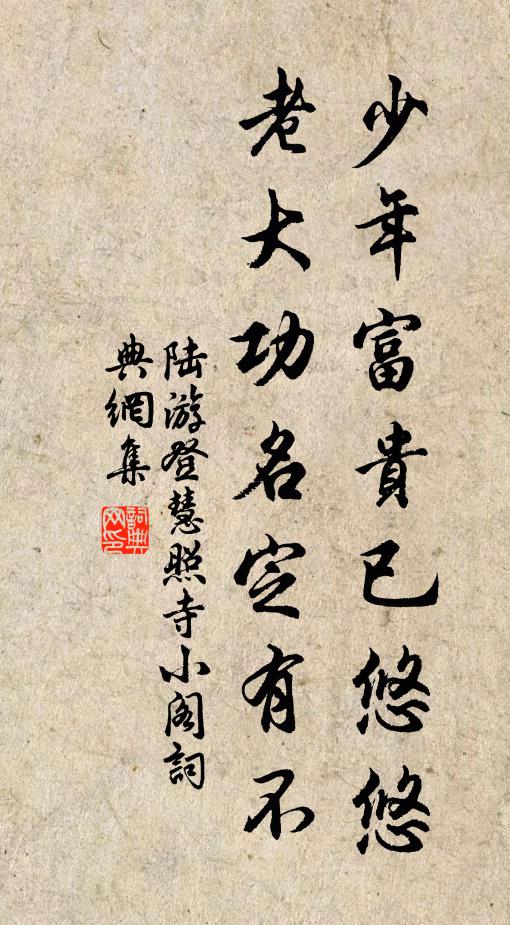 少年富貴已悠悠
老大功名定有不
陆游登慧照寺小阁詞
典網集
詞典网印